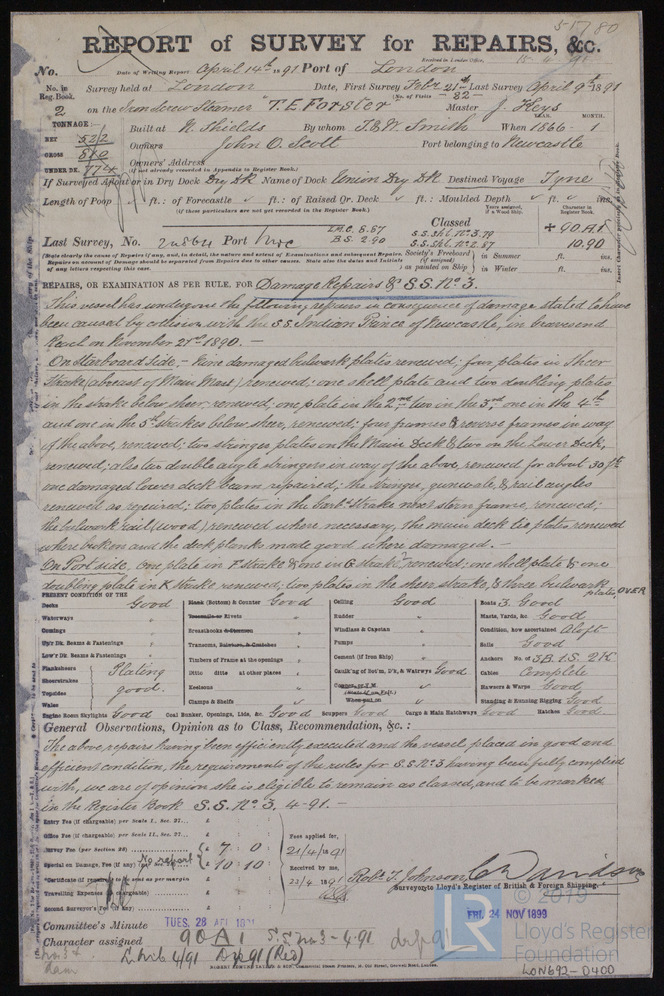 51780
REPORT of SURVEY for REPAIRS, &c.
Received in London Office, 15-4-91
No. Date of Writing Report April 14th 1891 Port of London
No. in Reg. Book. Survey held at London Date, First Survey Febr 21st Last Survey April 9th 1891
(No. of Visits 82)
2 on the Iron Screw Steamer "T. E. Forster" Master J. Keys
TONNAGE: YEAR. MONTH.
NET 522 Built at N. Shields By whom T. & W. Smith When 1866 - 1
GROSS 810 Owners John O. Scott Port belonging to Newcastle
UNDER DK. 774 Owners' Address
(if not already recorded in Appendix to Register Book.)
If Surveyed Afloat or in Dry Dock Dry Dk Name of Dock Union Dry Dk Destined Voyage Tyne
Length of Poop ft.: of Forecastle ft.: of Raised Qr. Deck ft.: Moulded Depth ft. ins.
(if these particulars are not yet recorded in the Register Book.)
Years assigned, if a Wood Ship. Character in Register Book.
Last Survey, No. 20864 Port Nwc L.M.C. 8.87 B.S. 2.90 Classed S.S. Shl. No. 3.79 S.S. Shl. No. 2.87 + 90.A1 10.90
Society's Freeboard (if assigned) as painted on Ship in Summer ft. ins.
in Winter ft. ins.
REPAIRS, OR EXAMINATION AS PER RULE, FOR Damage Repairs & S.S. No. 3.
This vessel has undergone the following repairs in consequence of damage stated to have
been caused by collision with the S.S. Indian Prince of Newcastle, in Gravesend
Reach on November 21st 1890. —
On Starboard side, — Nine damaged bulwark plates renewed; four plates in Sheer
Strake (abreast of Main Mast) renewed: one shell plate and two doubling plates
in the strake below sheer, renewed; one plate in the 2nd two in the 3rd one in the 4th
and one in the 5th strakes below sheer, renewed; four frames & reverse frames in way
of the above, renewed; two stringer plates on the Main Deck & two on the Lower Deck,
renewed; also two double angle stringers in way of the above, renewed for about 30 ft.
one damaged lower deck beam repaired; the stringer, gunwale, & rail angles
renewed as required; two plates in the Garbd Strake next stern frame, renewed;
the bulwark rail (wood) renewed where necessary, the main deck tie plates renewed
where broken and the deck planks made good where damaged. —
On Port side, one plate in F strake & one in G strake, renewed; one shell plate & one
doubling plate in K strake renewed; two plates in the sheer strake, & three bulwark plates, OVER
PRESENT CONDITION OF THE
Decks Good
Waterways "
Comings "
Up'r Dk. Beams & Fastenings "
Low'r Dk. Beams & Fastenings "
Planksheers
Sheerstrakes
Topsides
Wales
Plating good.
Engine Room Skylights Good
Hook (Bottom) & Counter Good
Treenails or Rivets "
Breasthooks & Crutches "
Transoms, Pointers, & Crutches "
Timbers of Frame at the openings "
Ditto ditto at other places "
Keelsons "
Clamps & Shelfs "
Coal Bunker, Openings, Lids, &c. Good
Ceiling Good
Rudder "
Windlass & Capstan "
Pumps "
Cement (if Iron Ship) "
Caulk'ng of Bot'm, D'k, & Watrwys Good
Scuppers Good
Boats 3. Good
Masts, Yards, &c. Good
Condition, how ascertained Aloft
Sails Good
Anchors No. of 3B. 1S. 2K
Cables Complete
Hawsers & Warps Good
Standing & Running Rigging Good
Cargo & Main Hatchways Good Hatches Good
General Observations, Opinion as to Class, Recommendation, &c.:
The above repairs having been efficiently executed and the vessel placed in good and
efficient condition, the requirements of the rules for S.S. No. 3 having been fully complied
with, we are of opinion she is eligible to remain as classed, and to be marked
in the Register Book S.S. No. 3, 4-91. —
Entry Fee (if chargeable) per Scale I., Sec. 27... £
Office Fee (if chargeable) per Scale II., Sec. 27... £
Survey Fee (per Section 28) £ 7 : 0
Special or Damage Fee (if any) No report £ 10 : 10
Certificate (if required) as per margin £
Travelling Expenses (if chargeable) £
Second Surveyor's Fee (if any) £
Fees applied for, 21/4/1891
Received by me, 22/4/1891
Robt. J. Johnson C. Davidson
Surveyor to Lloyd's Register of British & Foreign Shipping.
Committee's Minute TUES. 28 APL 1891 FRI. 24 NOV 1899
Character assigned 90A1 S.S. No 3 - 4.91
LMC 4/91 Drp 91 (Red)
ROBERT EDMUND TAYLOR & SON
© 2019
LR
Lloyd's Register
Foundation
LON692-0400